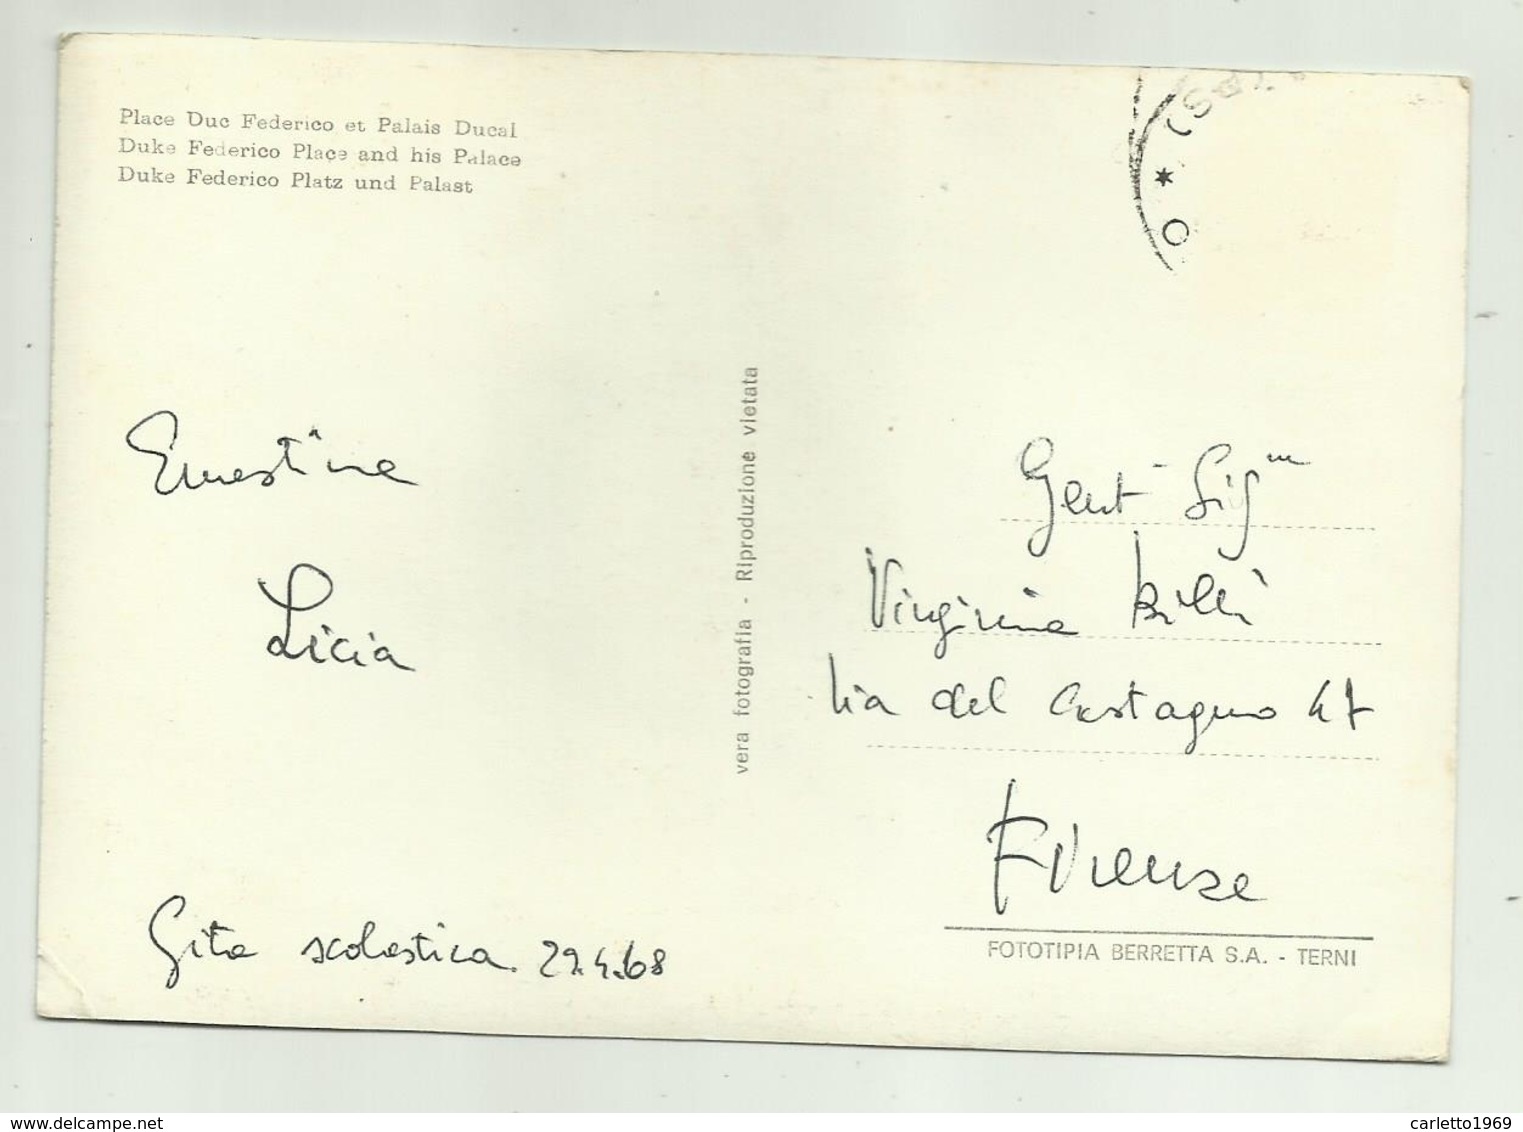 Place Duc Federico et Palais Ducal
Duke Federico Place and his Palace
Duke Federico Platz und Palast
Ernestina
Licia
Gita scolastica 29.4.68
vera fotografia - Riproduzione vietata
Gent Sig
Virginia Billi
Via del Castagno 47
Firenze
FOTOTIPIA BERRETTA S.A. - TERNI
www.delcampe.net
carletto1969